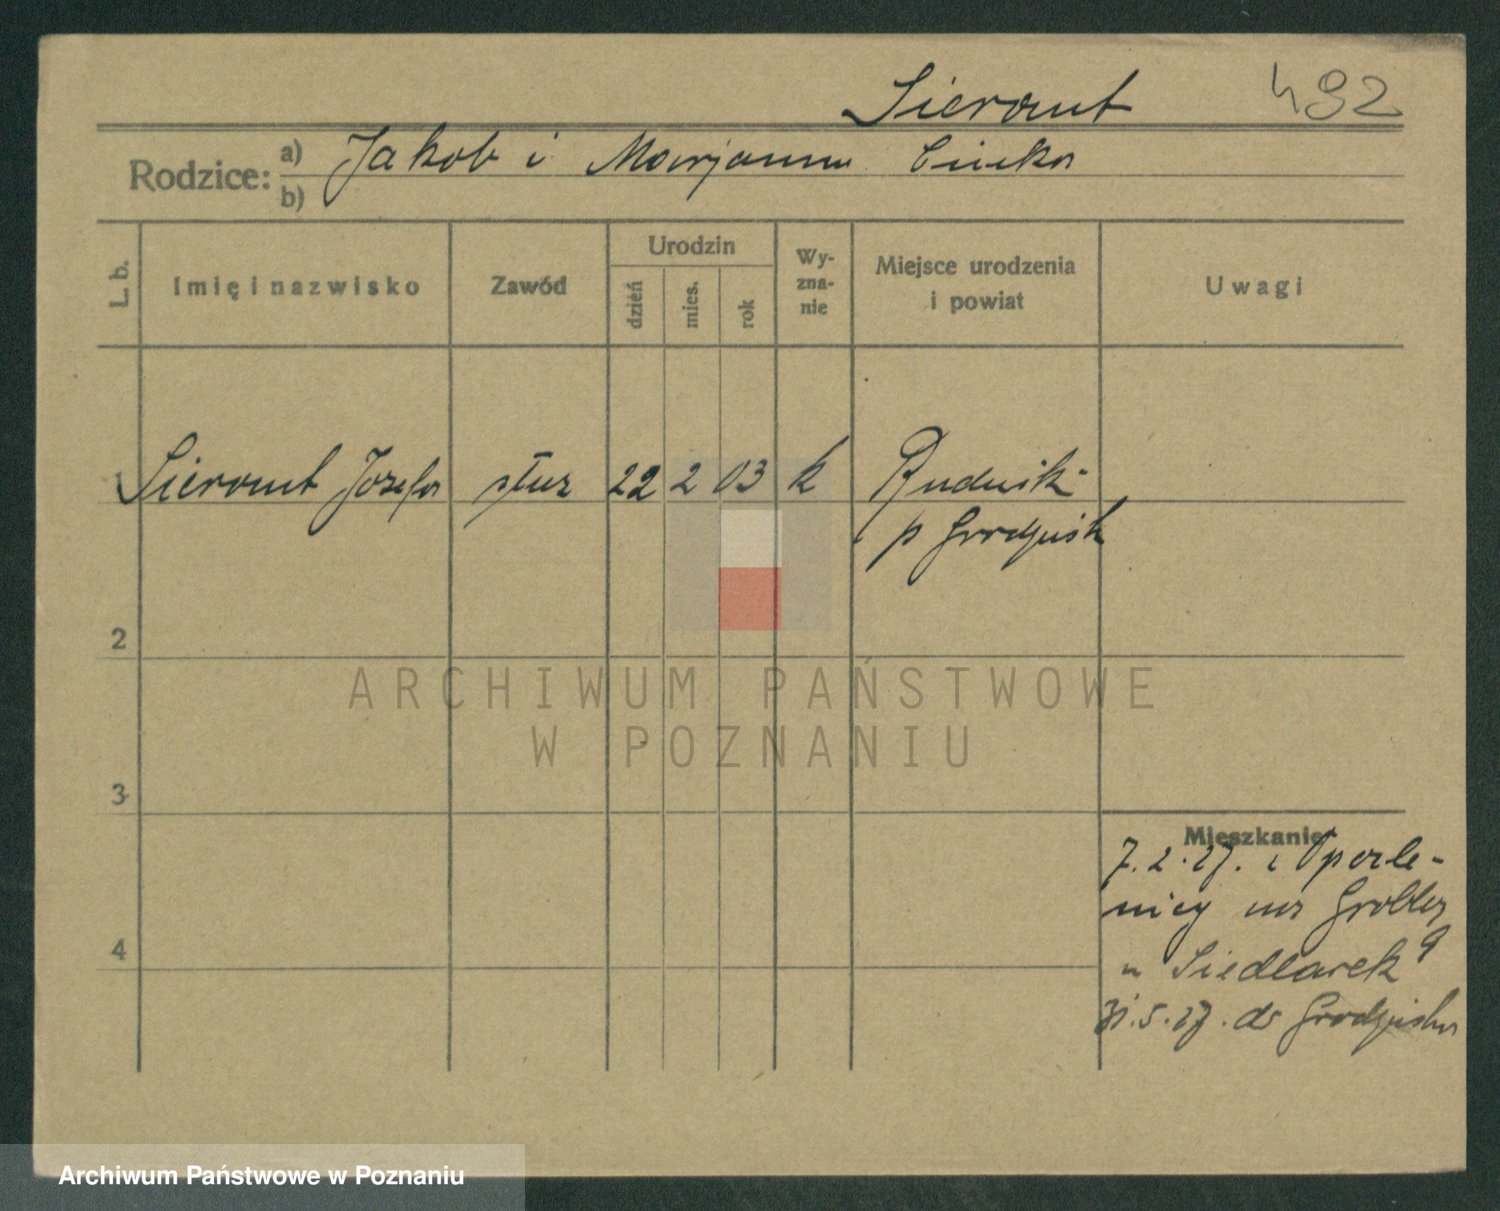 Sieromt 492
Rodzice: a) Jakob i Marjanna
b)
L. b. Imię i nazwisko Zawód Urodzin dzień mies. rok Wyzna-nie Miejsce urodzenia i powiat Uwagi
Sieromt Jozefa służ 22 2 03 k Rudnik
p Grodzisk
2
3
4
Mieszkanie:
7.2.27. z Opale-
nicy na Grobla
u Siedlarek 9
31.5.27. do Grodziska
ARCHIWUM PAŃSTWOWE
W POZNANIU
Archiwum Państwowe w Poznaniu